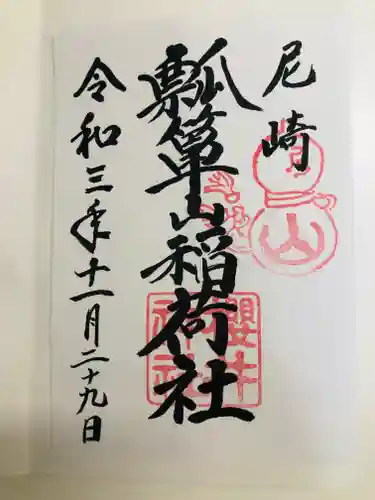 尼崎
瓢箪山稲荷社
令和三年十一月二十九日
櫻井神社
山